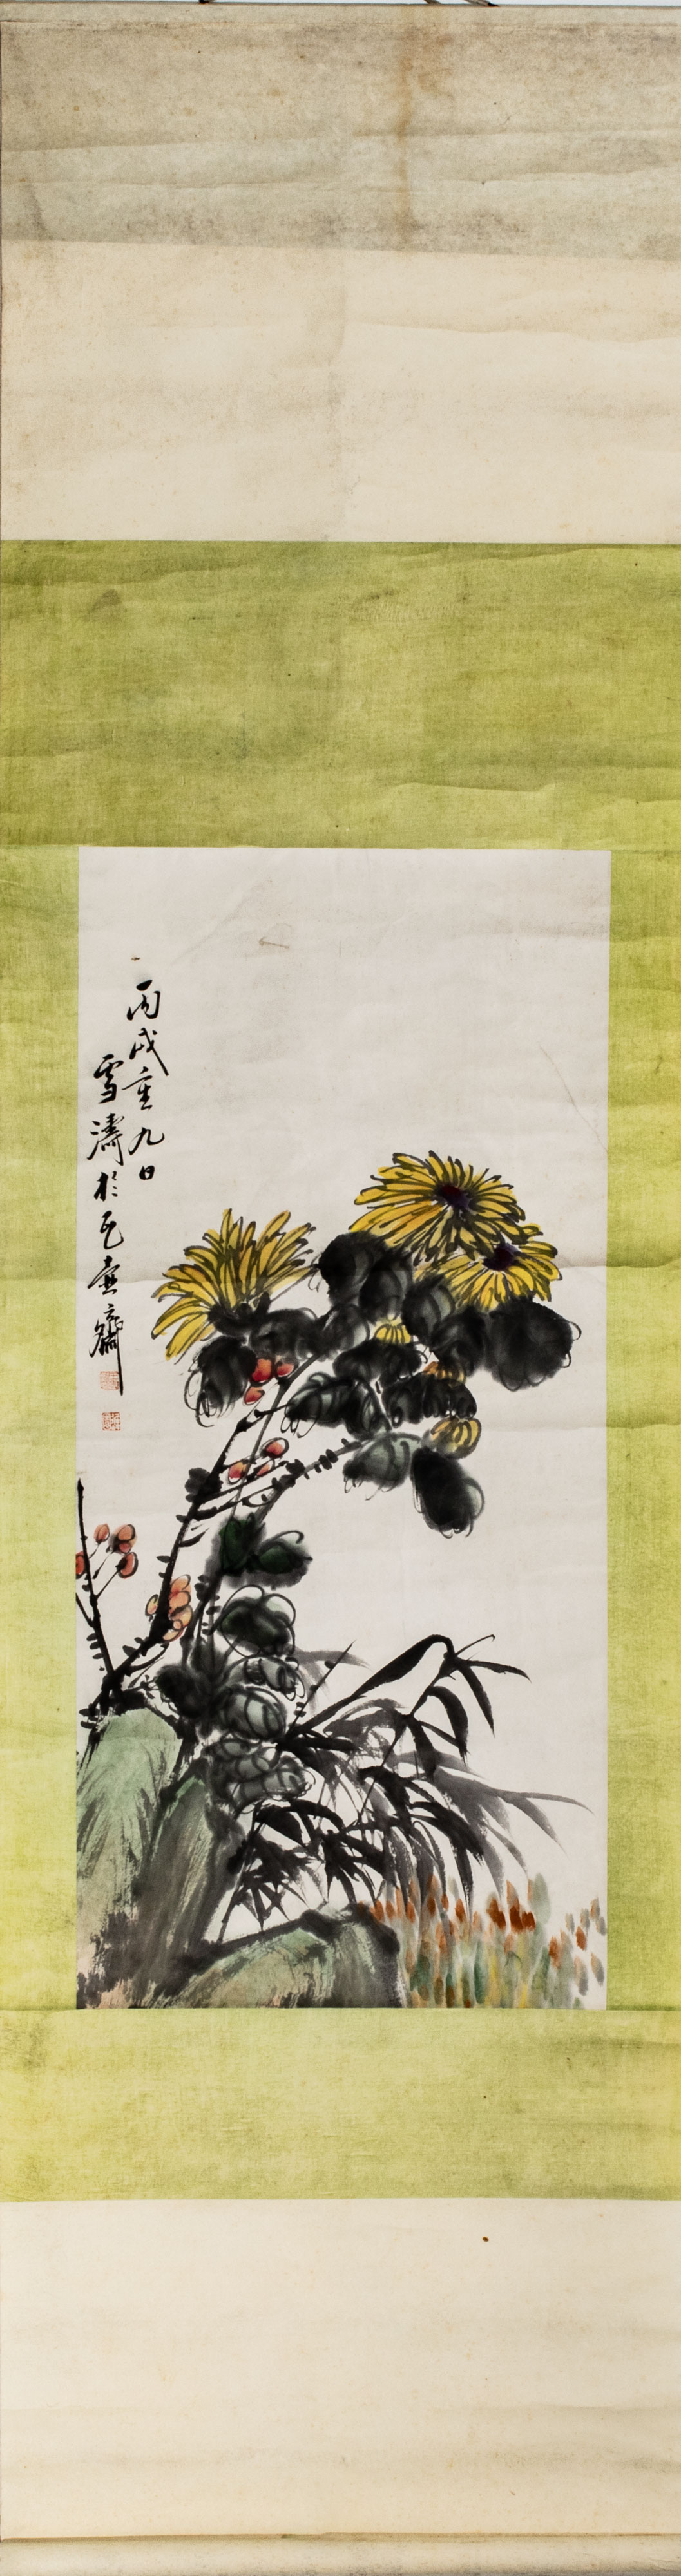 丙戌重九日
雪濤於瓦壺齋